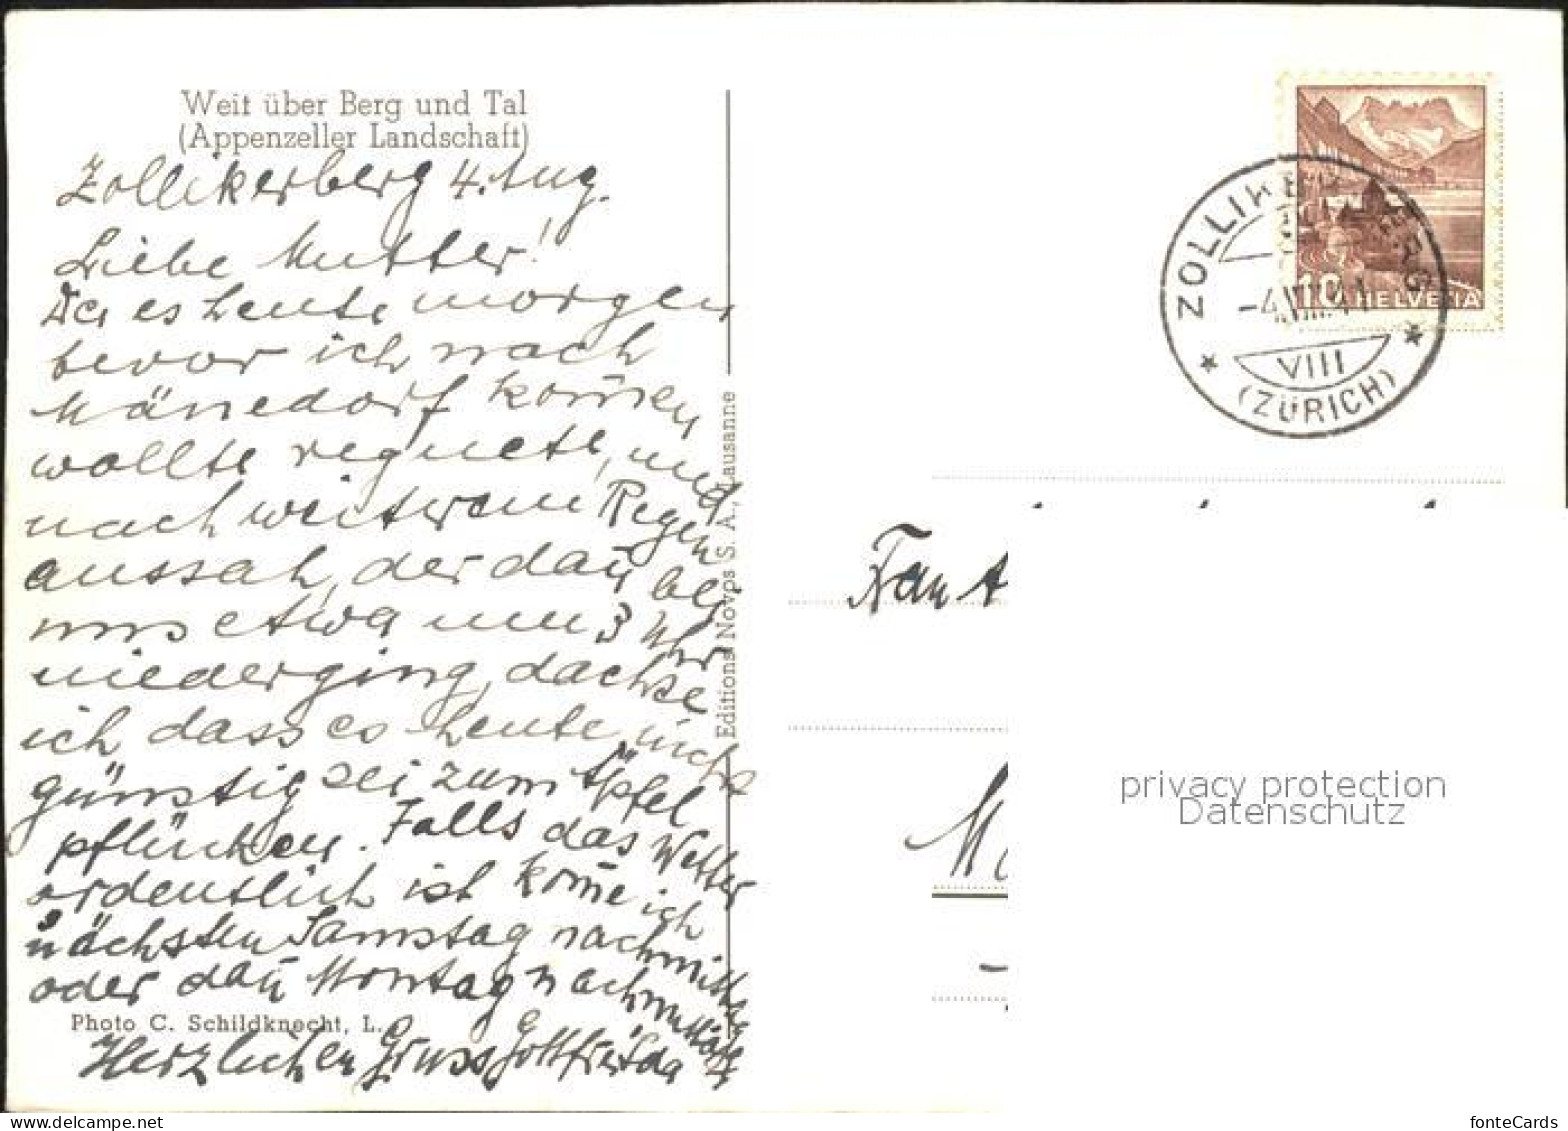 Weit über Berg und Tal
(Appenzeller Landschaft)
Zollikerberg 4. Aug.
Liebe Mutter!
Da es heute morgen
bevor ich nach
Mänedorf kom̄en
wollte regnete, und
nach weiterem Regen
aussah, der dan̄ bei
uns etwa um 3 Uhr
niederging, dachte
ich dass es heute nicht
günstig sei zum Äpfel
pflücken. Falls das Wetter
ordentlich ist kom̄e ich
nächsten Samstag nachmittag
oder dan̄ Montag nachmittag
Photo C. Schildknecht, L.
Herzlichen Gruss Gottfried
Editions Novos S. A., Lausanne
ZOLLIKERBERG
-4.VIII.41
VIII
(ZÜRICH)
10 HELVETIA
privacy protection
Datenschutz
fonteCards